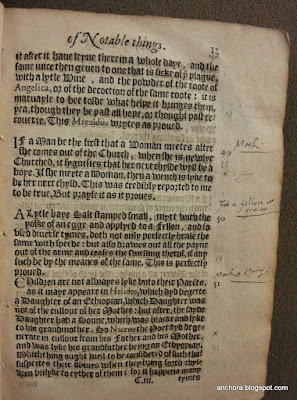 of Notable things.
it after it have leyne therein a whole daye, and the
same iuice then geuen to one that is sicke of ye plague,
with a lytle Wine, and the powder of the roote of
Angelica, or of the decoction of the same roote: it is
maruayle to bee tolde what helpe it bringes them,
yea, though they be past all hope, or thought past re-
couerie. This Mizaldus wrytes as proued.
IF a Man be the first that a Woman meetes after
she comes out of the Church, when she is newlye
Churched, it signifies that her next chylde wyll be a
boye. If she meete a Woman, then a wench is lyke to
be her next chyld. This was credibly reported to me
to be true. But prayse it as it proues.
49
A Lytle baye Salt stamped small, myxt with the
yolke of an egge and applyed to a fellon, and so
vsed diuerse tymes, doth not only perfectly heale the
same with speede: but also drawes out all the payne
out of the arme and ceases the swelling therof, if any
such be by the meanes of the same. This is perfectly
proued.
50
CHildren are not allwayes lyke vnto their Parents,
as it maye appeare in Helides, which dyd begette
a Daughter of an Ethyopian, which Daughter was
not of the cullour of her Mother: but after, the sayde
Daughter had a Sonne, which was blacke and lyke
to his grandmother. So Niceus the Poet dyd dege-
nerate in cullour from his Father and his Mother,
and was lyke his grandfather being an Ethyopian.
Which thing ought well to be considered of such that
suspectes their Wiues when they bryng forth chyl-
dren vnlyke to eyther of them: for it happens many
51
C.iii. tymes
anchora.blogspot.com